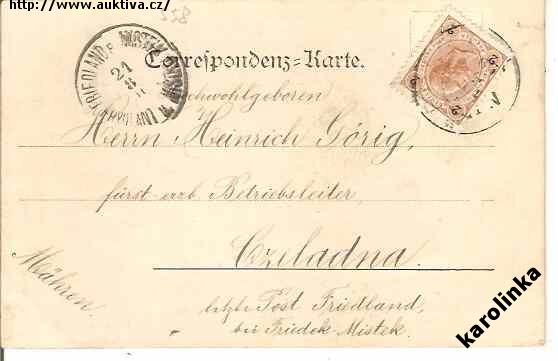 http://www.auktiva.cz/
558
FRIEDLAND
21
8
Correspondenz-Karte.
Hochwohlgeboren
Herrn Heinrich Görig,
fürst-erzb. Betriebsleiter,
Czeladna.
Mähren.
letzte Post Friedland,
bei Friedek-Mistek.
karolinka